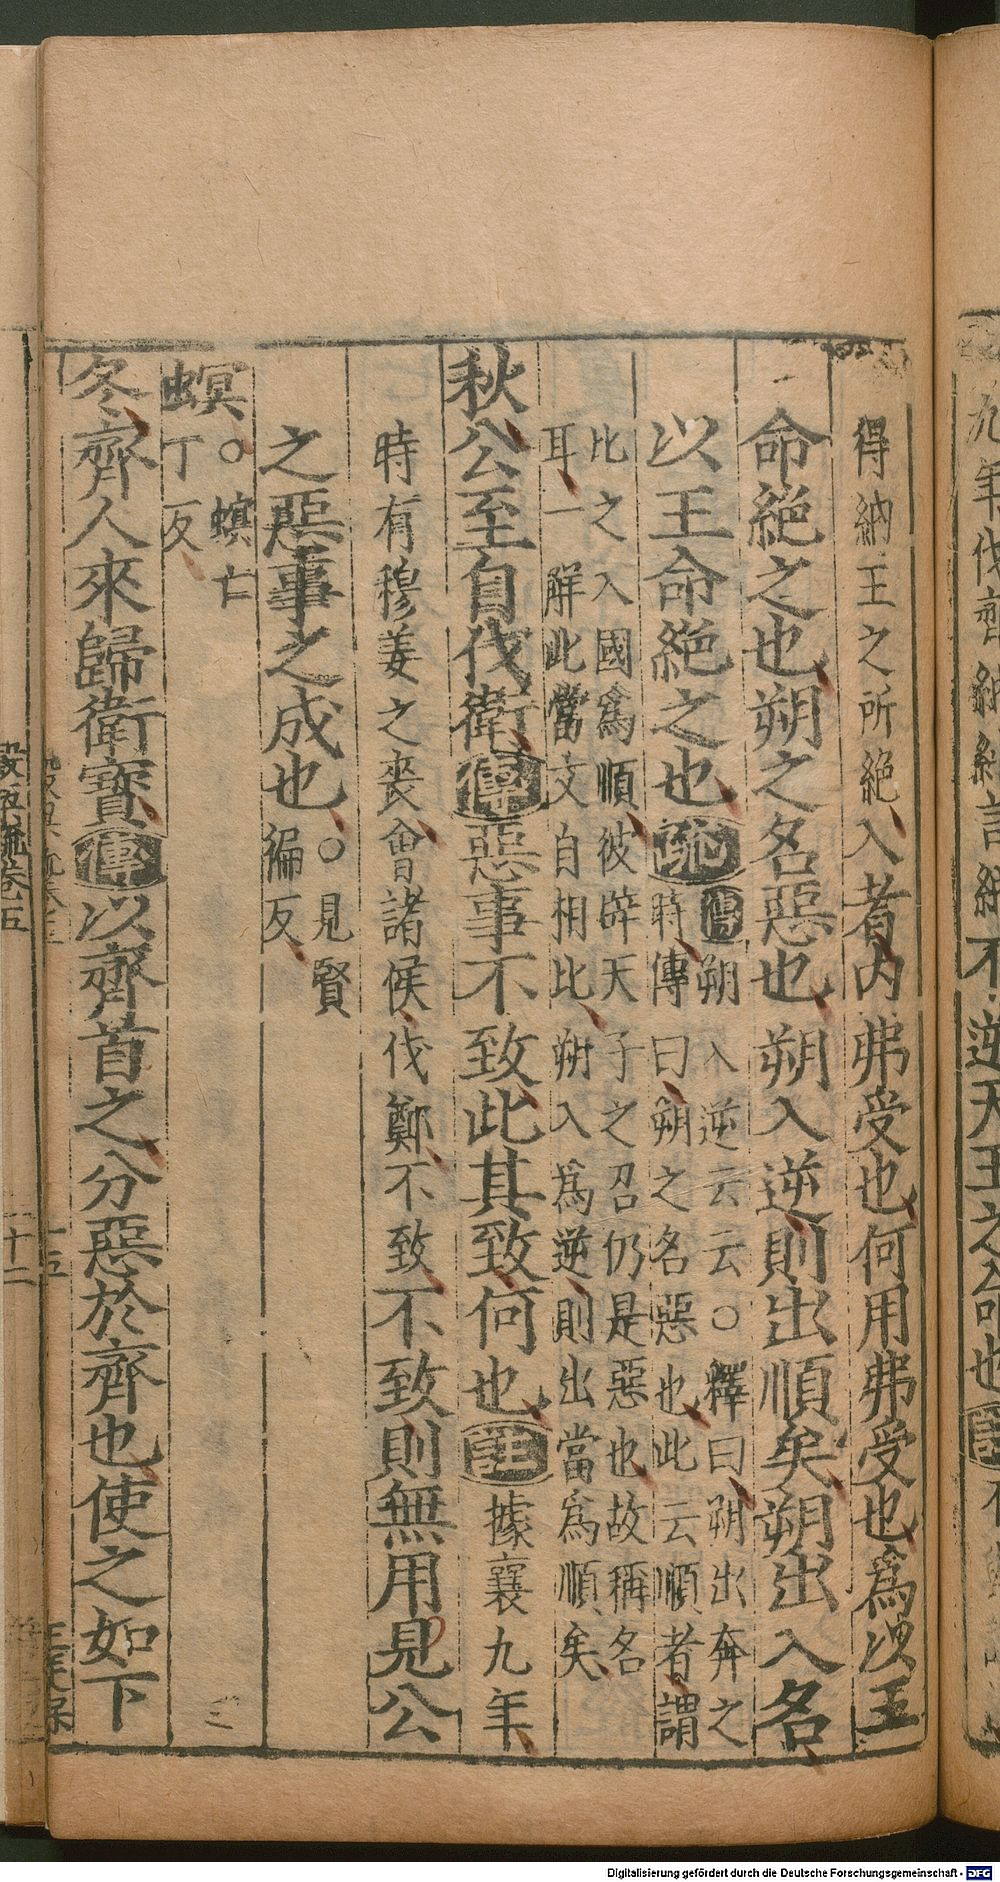 得納王之所絶入者内弗受也何用弗受也爲以王
命絶之也朔之名惡也朔入逆則出順矣朔出入名
以王命絶之也疏傳朔入逆云云○釋曰朔出奔之
時傳曰朔之名惡也此云順者謂
比之入國爲順彼辟天子之召仍是惡也故稱名
耳一解此當文自相比朔入爲逆則出當爲順矣
秋公至自伐衛傳惡事不致此其致何也註據襄九年
時有穆姜之喪會諸侯伐鄭不致不致則無用見公
之惡事之成也○見賢
徧反
螟○螟亡
丁反
冬齊人來歸衛寶傳以齊首之分惡於齊也使之如下
Digitalisierung gefördert durch die Deutsche Forschungsgemeinschaft - DFG